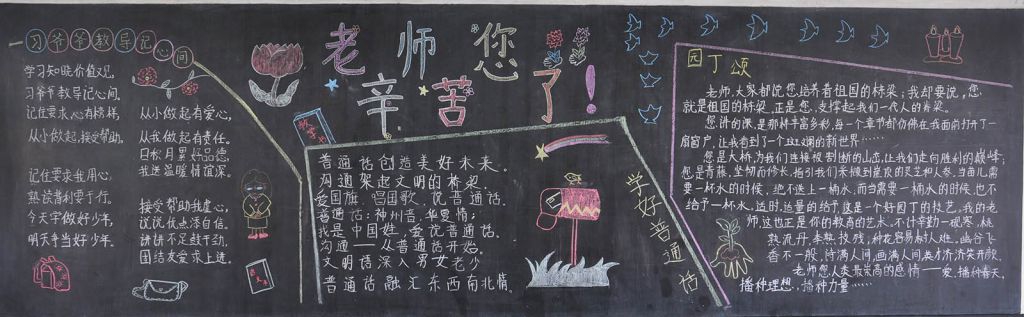 习爷爷教导记心间
学习知晓价值观,
习爷爷教导记心间。
记住要求,心有榜样,
从小做起,接受帮助。
记住要求我用心,
熟读勤要于行。
今天学做好少年,
明天争当好少年。
从小做起有爱心,
从我做起有责任。
日积月累好品德,
我送温暖情谊深。
接受帮助我虚心,
说说优点添自信。
讲讲不足鼓干劲,
团结友爱求上进。
老师您
辛苦了!
普通话创造美好未来。
沟通架起文明的桥梁
爱国旗、唱国歌、说普通话。
普通话:神州音,华夏情;
我是中国娃,爱说普通话。
沟通——从普通话开始。
文明语深入男女老少
普通话融汇东西南北情。
学好普通话
园丁颂
老师,大家都说您培养着祖国的栋梁;我却要说,您
就是祖国的栋梁。正是您,支撑起我们一代人的脊梁。
您讲的课,是那样丰富多彩,每一个章节都仿佛在我面前打开了一
扇窗户,让我看到了一个斑斓的新世界……
您是大桥,为我们连接被割断的山峦,让我们走向胜利的巅峰;
您是青藤,坚韧而修长,指引我们采撷到崖顶的灵芝和人参。当苗儿需
要一杯水的时候,绝不送上一桶水;而当需要一桶水的时候,也不
给予一杯水。适时,适量的给予,这是一个好园丁的技艺。我的老
师,这也正是你的教育的艺术。不计辛勤一砚寒,桃
熟流丹,李熟枝残,种花容易树人难。幽谷飞
香不一般,诗满人间,画满人间,英才济济笑开颜。
老师您,人类最崇高的感情——爱,播种春天,
播种理想,播种力量……